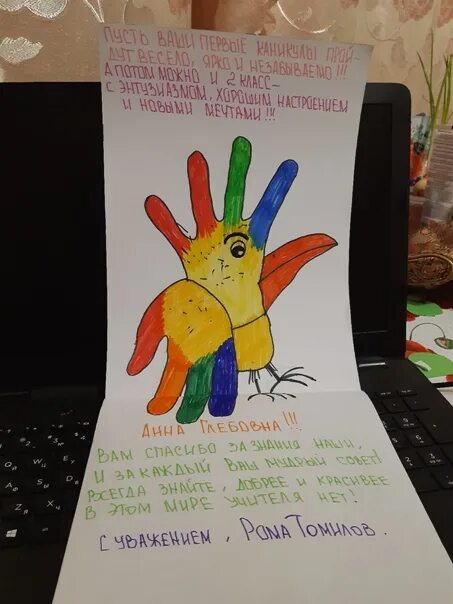 ПУСТЬ ВАШИ ПЕРВЫЕ КАНИКУЛЫ ПРОЙ-
ДУТ ВЕСЕЛО, ЯРКО И НЕЗАБЫВАЕМО!!!
А ПОТОМ МОЖНО И 2 КЛАСС-
С ЭНТУЗИАЗМОМ, ХОРОШИМ НАСТРОЕНИЕМ
И НОВЫМИ МЕЧТАМИ!!!
АННА ГЛЕБОВНА!!!
ВАМ СПАСИБО ЗА ЗНАНИЯ НАШИ,
И ЗА КАЖДЫЙ ВАШ МУДРЫЙ СОВЕТ!
ВСЕГДА ЗНАЙТЕ, ДОБРЕЕ И КРАСИВЕЕ
В ЭТОМ МИРЕ УЧИТЕЛЯ НЕТ!
С УВАЖЕНИЕМ, РОМА ТОМИЛОВ.